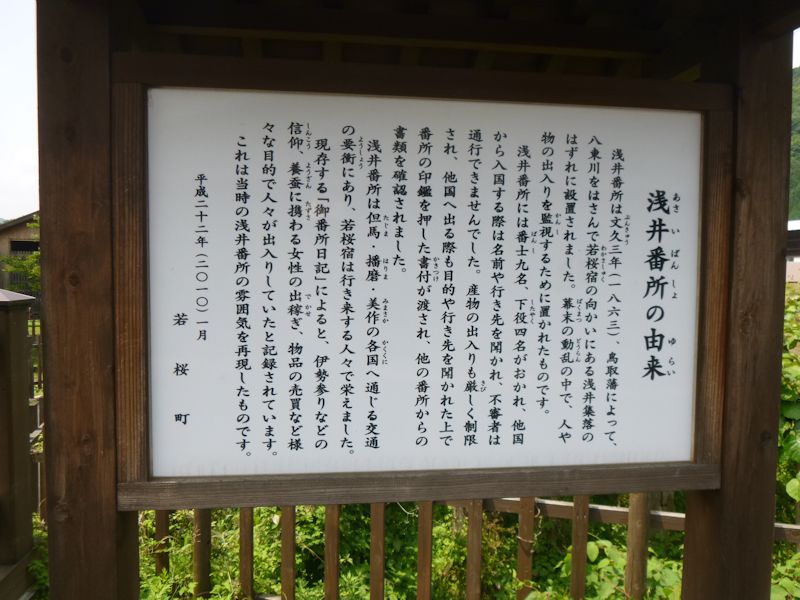 浅井番所の由来
あさいばんしょ ゆらい
浅井番所は文久三年(一八六三)、鳥取藩によって、
ぶんきゅう
八東川をはさんで若桜宿の向かいにある浅井集落の
わかさしゅく
はずれに設置されました。幕末の動乱の中で、人や
ばくまつ どうらん
物の出入りを監視するために置かれたものです。
かんし
浅井番所には番士九名、下役四名がおかれ、他国
ばんし したやく
から入国する際は名前や行き先を聞かれ、不審者は
通行できませんでした。産物の出入りも厳しく制限
きび
され、他国へ出る際も目的や行き先を聞かれた上で
番所の印鑑を押した書付が渡され、他の番所からの
かきつけ
書類を確認されました。
浅井番所は但馬・播磨・美作の各国へ通じる交通
たじま はりま みまさか かくくに
の要衝にあり、若桜宿は行き来する人々で栄えました。
ようしょう
現存する「御番所日記」によると、伊勢参りなどの
信仰、養蚕に携わる女性の出稼ぎ、物品の売買など様
しんこう ようざん たずさ でかせ
々な目的で人々が出入りしていたと記録されています。
これは当時の浅井番所の雰囲気を再現したものです。
平成二十二年(二〇一〇)一月
若桜町